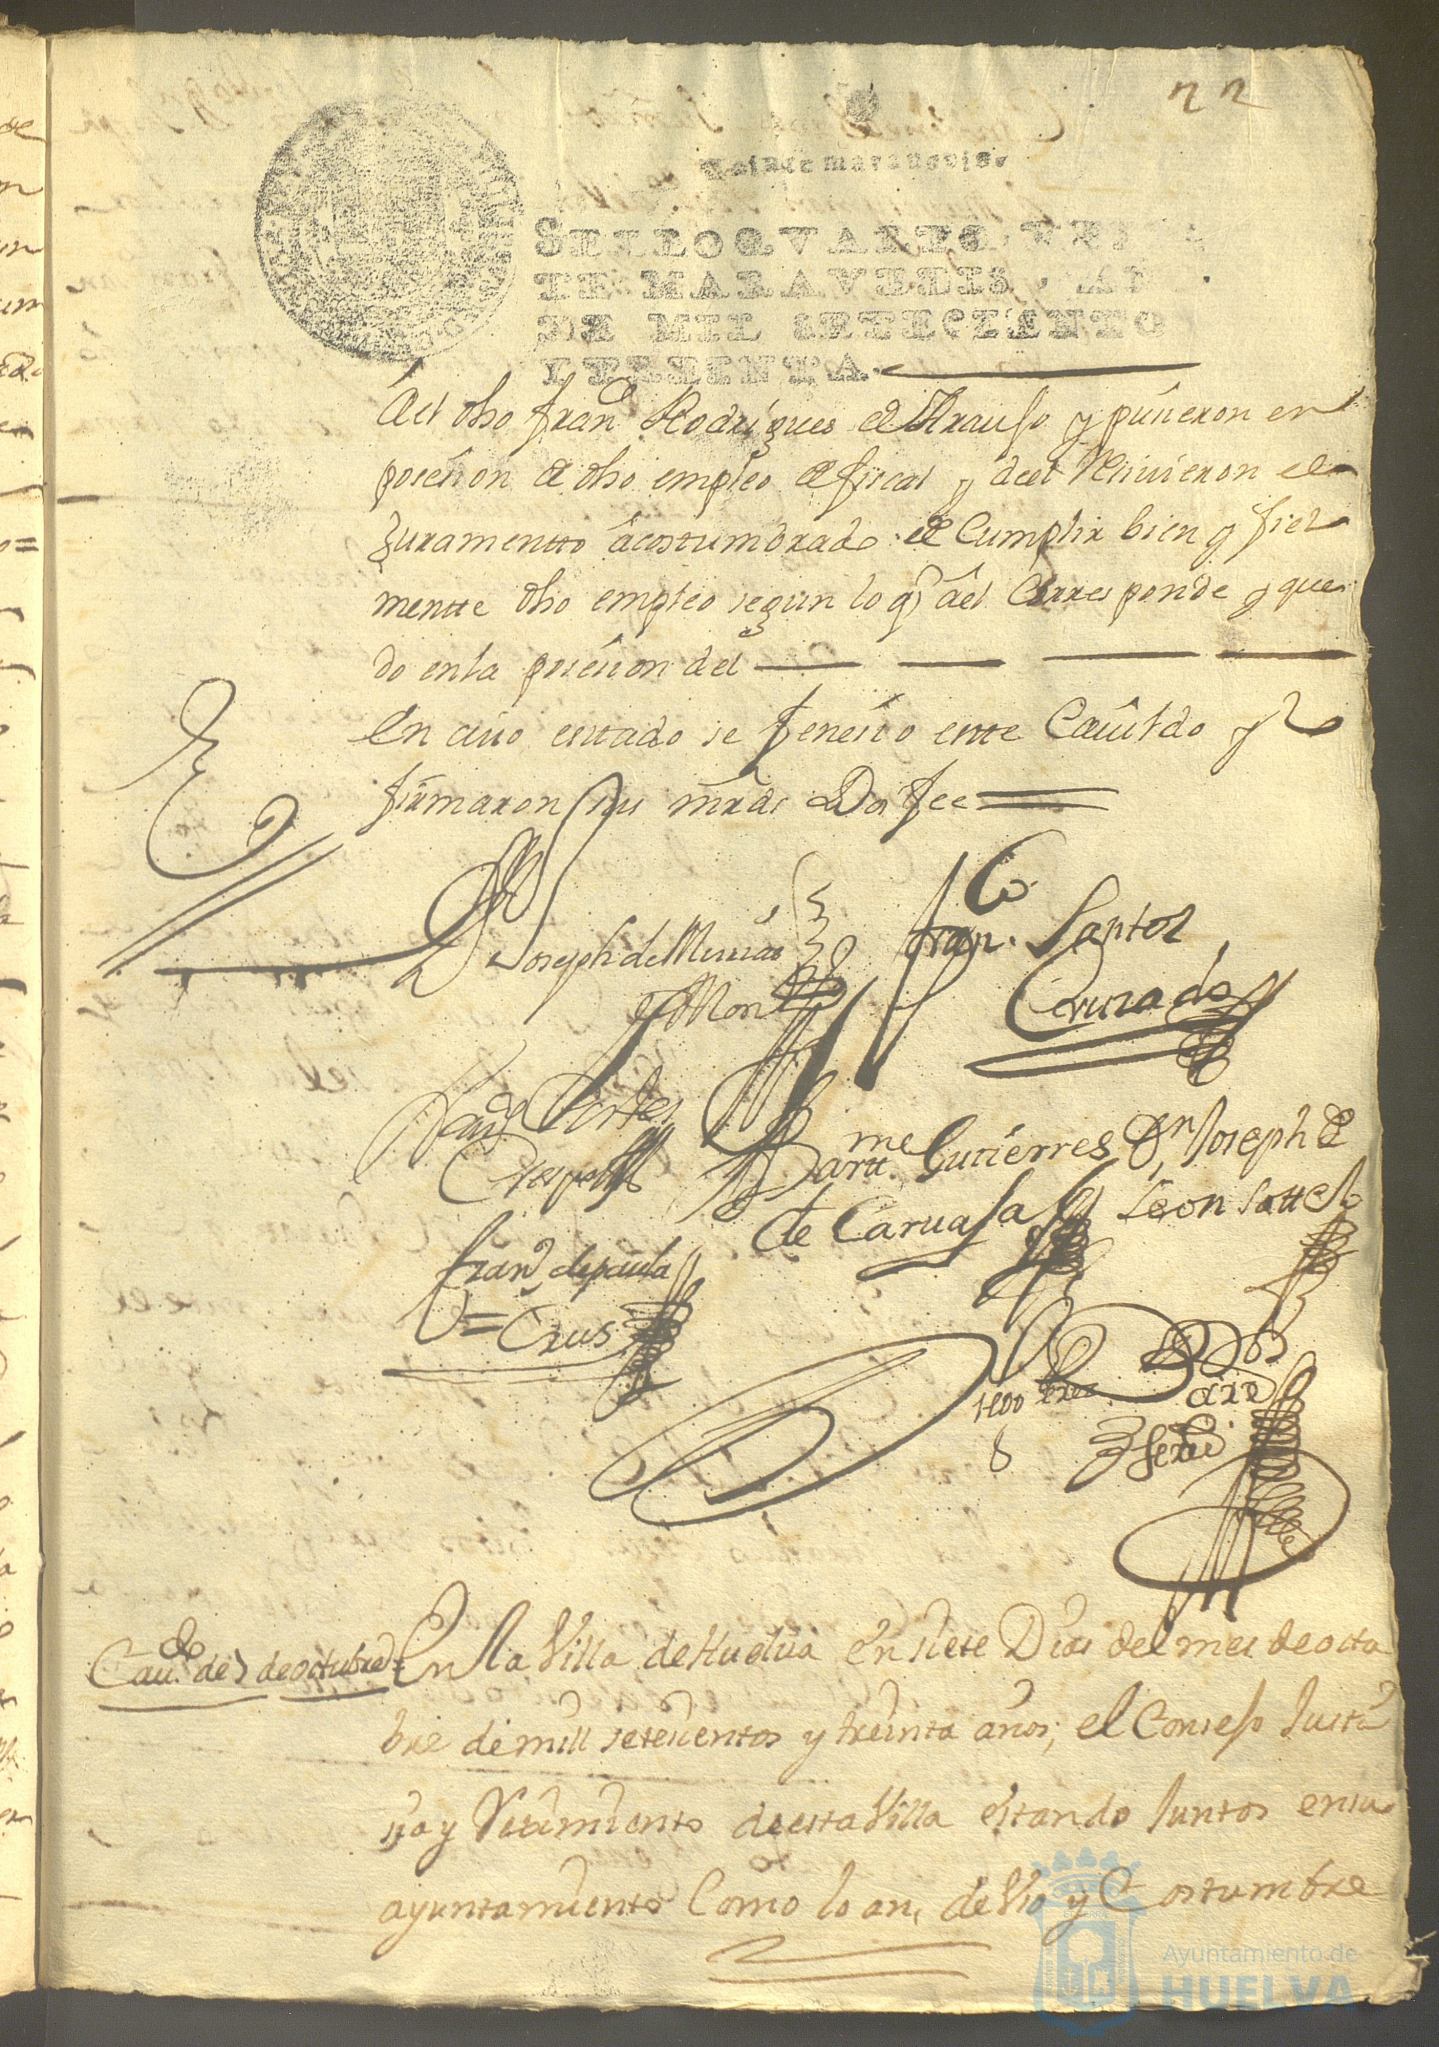 22
Veinte maravedis.
SELLO QVARTO, VEIN
TE MARAVEDIS, AÑO
DE MIL SETECIENTO
Y TREINTA.
Ael dho Fran.co Rodrigues de Araujo y pusieron en
posesion de dho empleo de fiscal y deel Resivieron el
Juramentto acostumbrado de Cumplir bien y fiel
mentte dho empleo segun lo q̃ ael Corresponde y que
do enla posesion del
En cuio esttado se fenesio este Cauildo y lo
firmaron sus mrds Doi fee
Dn Joseph de Messias
Fran.co Santos
Cruzado
Cortes
Crespo
Bartt.me Gutierres
de Caruajal
Dn Joseph de
Leon Sottelo
Fran.co de paula
Crus
Cau.do de 7 de octubre
En la Villa de Huelua en siete Dias del mes de octu
bre de mill setesientos y treinta años, el Consejo Justi
sia y Reximiento de esta Villa estando Juntos en su
ayuntamiento Como lo an, de Vso y Costumbre
Ayuntamiento de
HUELVA